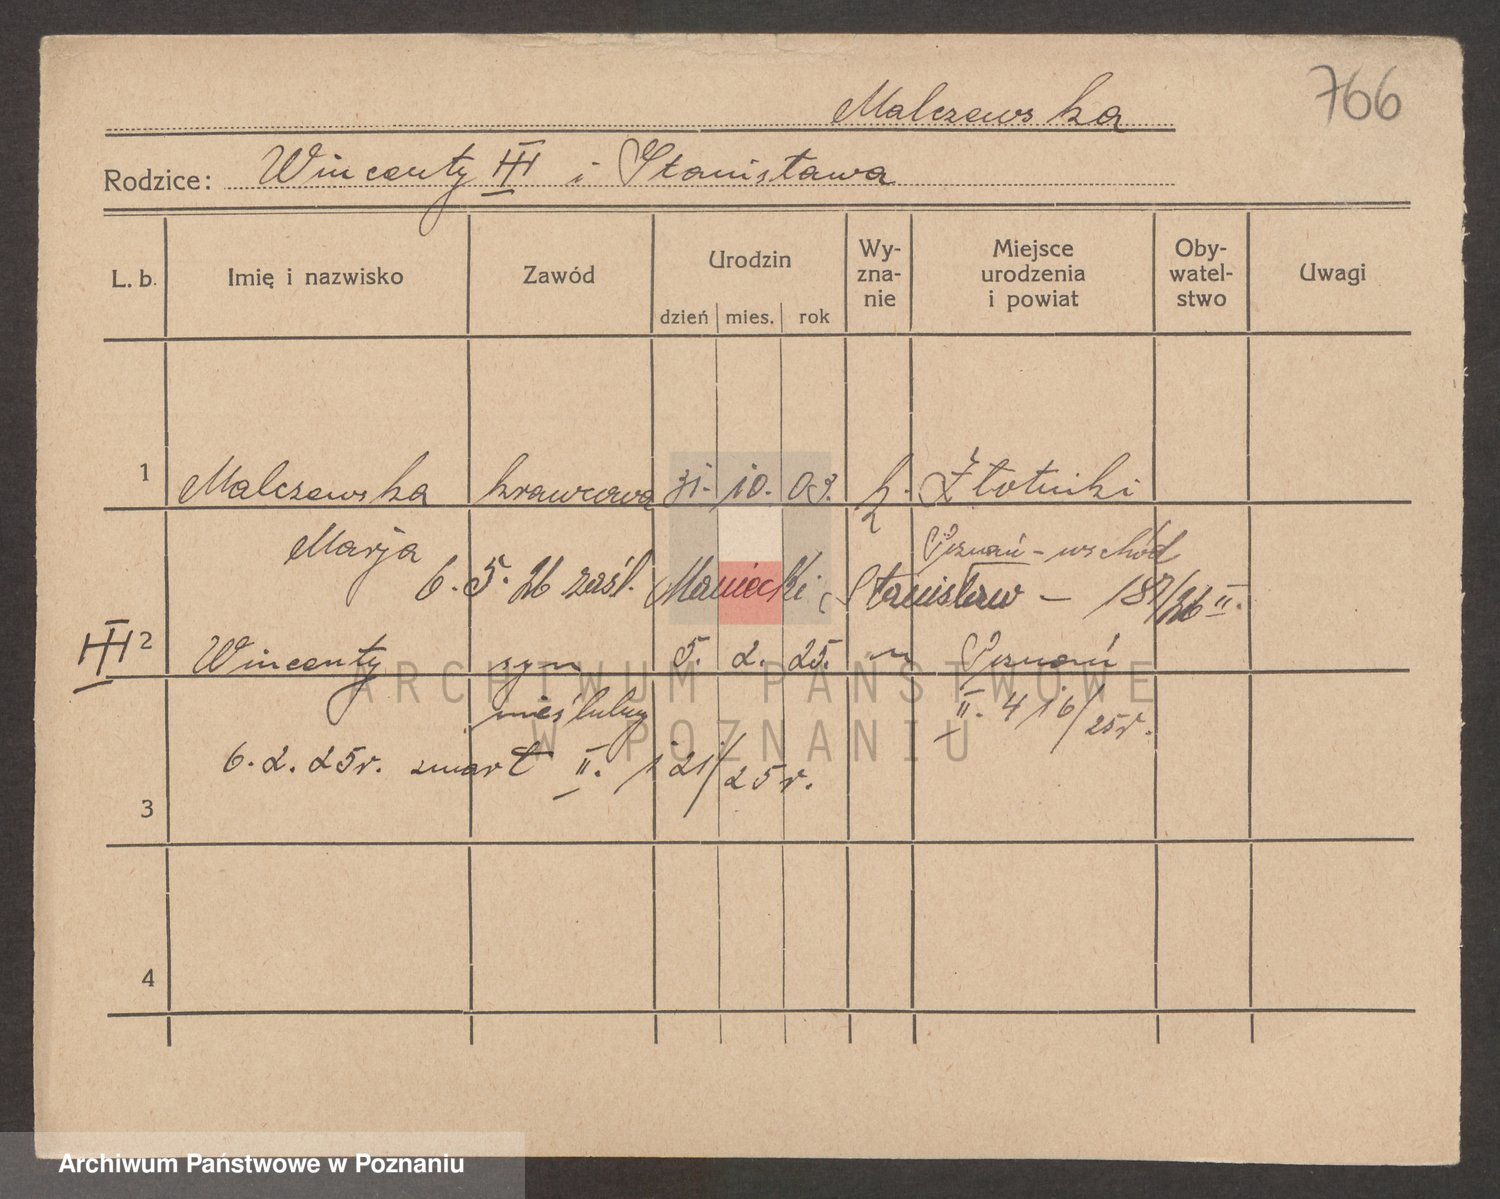 766
Malczewska
Rodzice: Wincenty III i Stanisława
L. b. Imię i nazwisko Zawód Urodzin dzień mies. rok Wy-zna-nie Miejsce urodzenia i powiat Oby-watel-stwo Uwagi
1 Malczewska krawcowa 31. 10. 03. k. Złotniki
Marja Poznań - wschód
6. 5. 26 zaśl. Maniecki Stanisław — 187/26 II.
III 2 Wincenty syn 5. 2. 25. " Poznań
nieślubny II. 416/25r.
6. 2. 25r. zmarł II. 121/25r.
3
4
ARCHIWUM PAŃSTWOWE
W POZNANIU
Archiwum Państwowe w Poznaniu